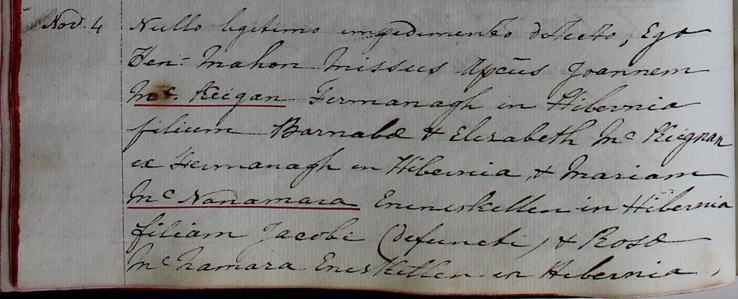 Nov. 4 Nullo legitimo impedimento detecto, Ego
Hen: Mahon Missus Apcūs Joannem
Mc. Keigan Fermanagh in Hibernia
filium Barnabæ & Elizabeth Mc Keignan
ex Fermanagh in Hibernia & Mariam
Mc Nanamara Eneniskellen in Hibernia
filiam Jacobi (defuncti) & Rosæ
McNamara Eneskillen in Hibernia,